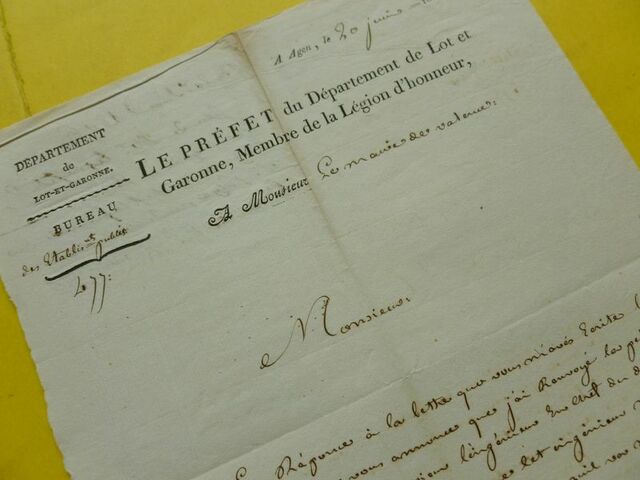 A Agen, le 20 juin
DÉPARTEMENT
de
LOT-ET-GARONNE.
BUREAU
des Etablis.ts public
477:
LE PRÉFET du Département de Lot et
Garonne, Membre de la Légion d'honneur,
A Monsieur Le maire de valence:
Monsieur
En Réponse à la lettre que vous m'avés Ecrite
vous annonce que j'ai Renvoyé la
l'ingénieur En chef du
et ingénieur